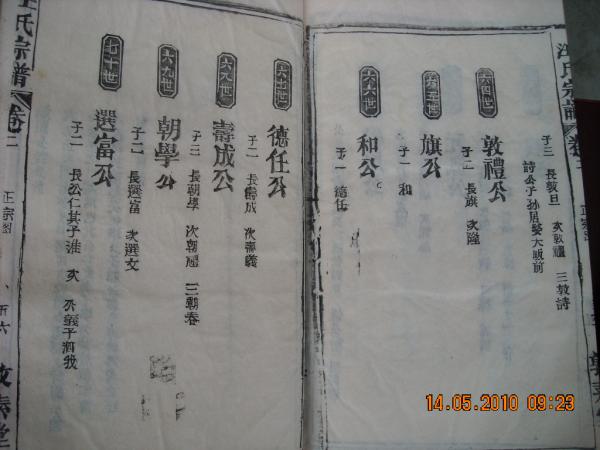 汪氏宗譜 卷二
正宗圖
子三 長敦旦 次敦禮 三敦詩
詩公子孫居婺大畈前
六四世
敦禮公
子二 長旗 次隆
六五世
旗公
子一 和
六六世
和公
子一 德任
六七世
德任公
子二 長壽成 次壽義
壽成公
子三 長朝學 次朝禮 三朝春
六九世
朝學公
子二 長選富 次選文
七十世
選富公
子二 長公仁其子淮 次
氏宗譜 卷二
正宗圖
五六
堂
14.05.2010 09:23